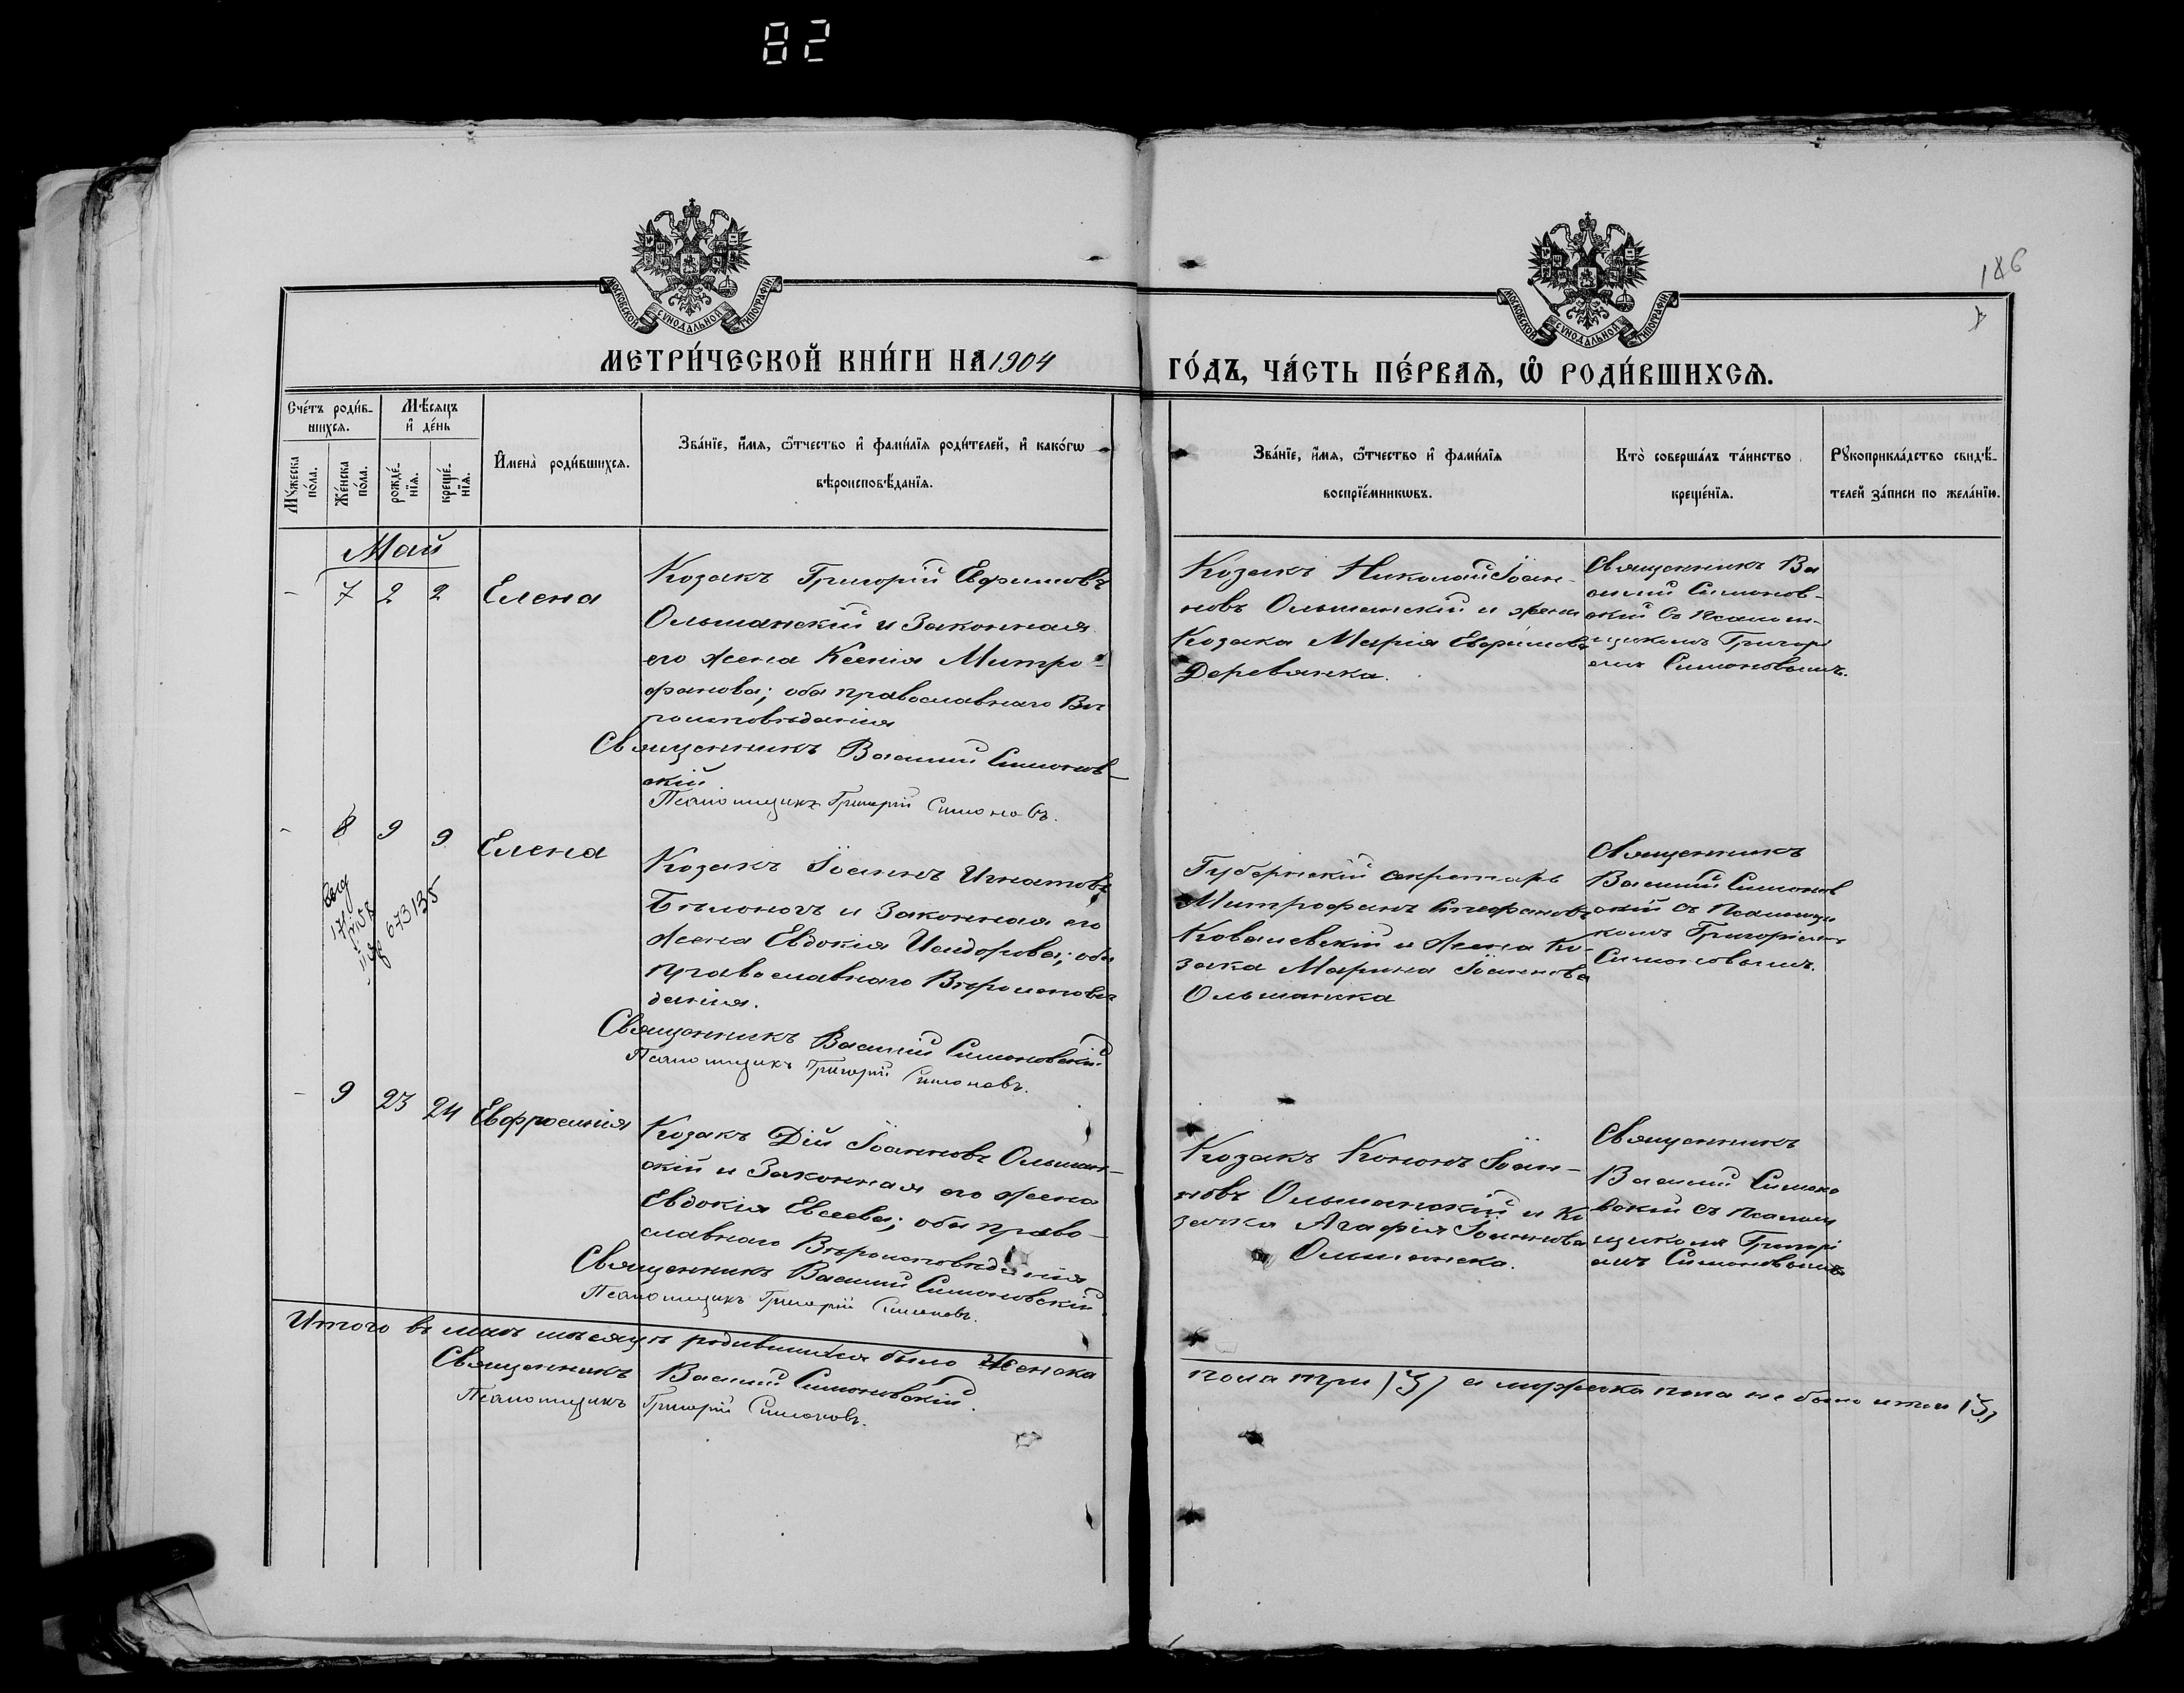 82
186
МОСКОВСКОЙ СѴНОДАЛЬНОЙ ТИПОГРАФІИ
МОСКОВСКОЙ СѴНОДАЛЬНОЙ ТИПОГРАФІИ
МЕТРИ́ЧЕСКОЙ КНИ́ГИ НА 1904 ГО́ДЪ, ЧА́СТЬ ПЕ́РВАѦ, Ѡ҆ РОДИ́ВШИХСѦ.
Сче́тъ роди́в-
шихсѧ.
Мꙋ́жеска
по́ла.
Же́нска
по́ла.
Мѣ́сѧцъ
и҆ де́нь
рожде́-
нїѧ.
креще́-
нїѧ.
И҆мена̀ роди́вшихсѧ.
Зва́нїе, и҆́мѧ, ѻ҆́тчество и҆ фами́лїѧ роди́телей, и҆ како́гѡ
вѣроисповѣ́данїѧ.
Зва́нїе, и҆́мѧ, ѻ҆́тчество и҆ фами́лїѧ
воспрїе́мникѡвъ.
Кто̀ соверша́лъ та́инство
креще́нїѧ.
Рꙋкоприкла́дство свидѣ́-
телей за́писи по жела́нїю.
Май
- 7 2 2 Елена
Козакъ Григорій Евфимовъ
Ольшанскій и законная
его жена Ксенія Митро-
фанова; оба православнаго Вѣ
роисповѣданія
Священникъ Василій Симонов-
скій
Псаломщикъ Григорій Симоновъ.
Козакъ Николай Іоан-
новъ Ольшанскій и жена
Козака Марія Евфимова
Деревянка.
Священникъ Ва
силій Симонов-
скій съ Псалом-
щикомъ Григорі
емъ Симоновымъ.
- 8 9 9 Елена
673135
Козакъ Іоаннъ Игнатовъ
Бѣлоногъ и законная его
жена Евдокія Исидорова; оба
православнаго Вѣроисповѣ
данія.
Священникъ Василій Симоновскій
Псаломщикъ Григорій Симоновъ.
Губернскій секретарь
Митрофанъ Стефановъ
Ковалевскій и жена Ко-
зака Марина Іоаннова
Ольшанка
Священникъ
Василій Симонов
скій съ Псаломщи
комъ Григоріемъ
Симоновымъ.
- 9 23 24 Евфросинія
Козакъ Дій Іоанновъ Ольшан-
скій и законная его жена
Евдокія Евсеева; оба право-
славнаго Вѣроисповѣданія
Священникъ Василій Симоновскій.
Псаломщикъ Григорій Симоновъ.
Козакъ Кононъ Іоан-
новъ Ольшанскій и Ко
зачка Агафія Іоаннова
Ольшанска.
Священникъ
Василій Симоно
вскій съ Псалом
щикомъ Григорі
емъ Симоновымъ
Итого въ маѣ мѣсяцѣ родившихся было женска пола три (3) а мужеска пола не было итого (3)
Священникъ Василій Симоновскій.
Псаломщикъ Григорій Симоновъ.